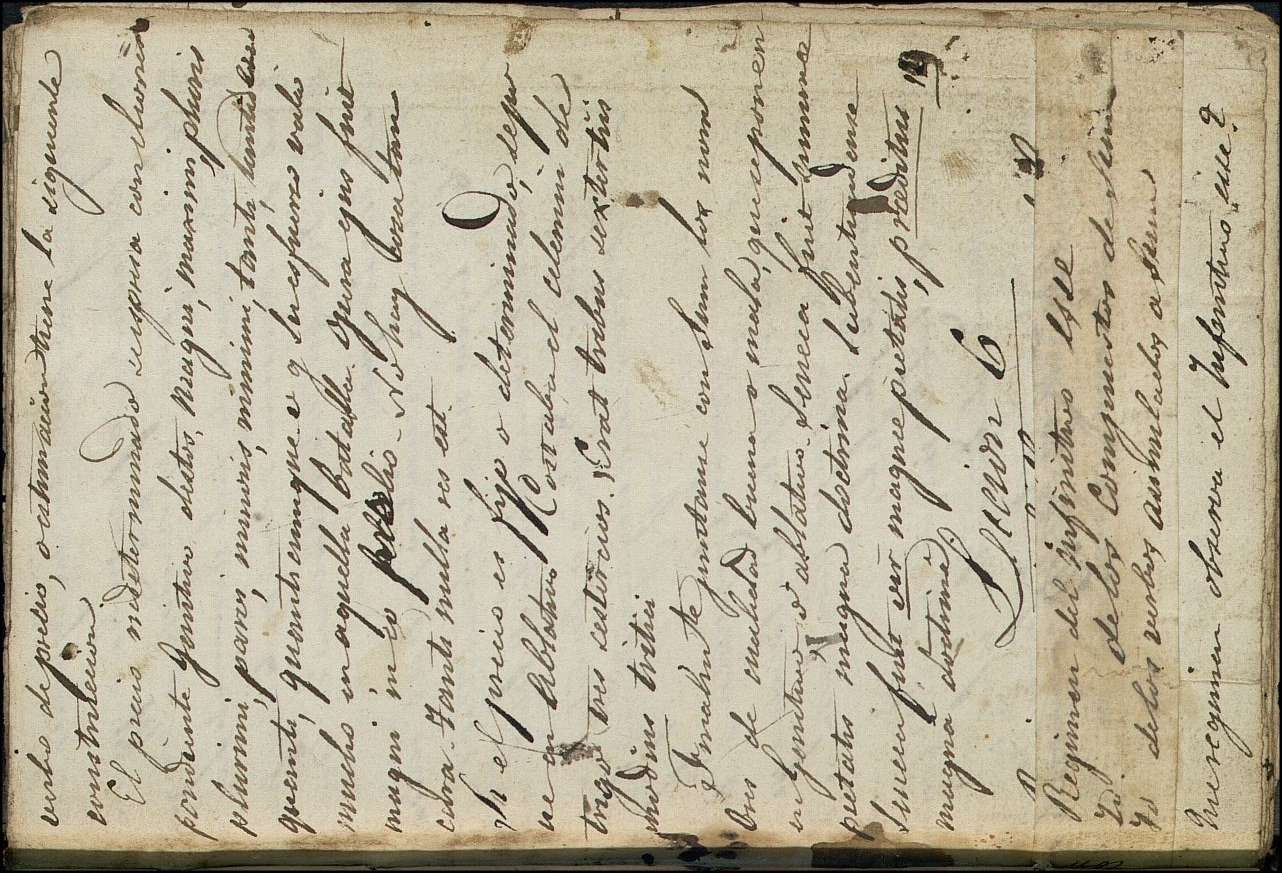 verbo de precio, o estimacion tiene la siguiente
construccion
El precio indeterminado se pone en el corres-
pondiente Genitivo destos, magni, maximi, pluris
plurimi, parvi, minoris, minimi, tanti, tantidem
quanti, quanti cumque
mucho en aquella batalla. opera ejus fuit
magni in eo prelio. No hay cosa tan
cara. Tanti nulla res est.
Si el precio es fijo o determinado, se po-
ne en Ablativo. Costaba el celemin de
trigo tres cestercios. Erat tribus sextertiis
modius tritici
Finalmte juntame con Sum los nom
bres de cualidad buena o mala, que se ponen
en Genitivo o ablativo. Seneca fuit summae
pietatis magna doctrina. Subentendiense
Seneca fuit vir magnae pietatis, preditus
magna doctrina
Leccion 6
Regimen del infinitivo Esse
Yd. de los Compuestos de Sum
Yd de los verbos asimilados a Sum
Que regimen observa el Infinitivo esse?